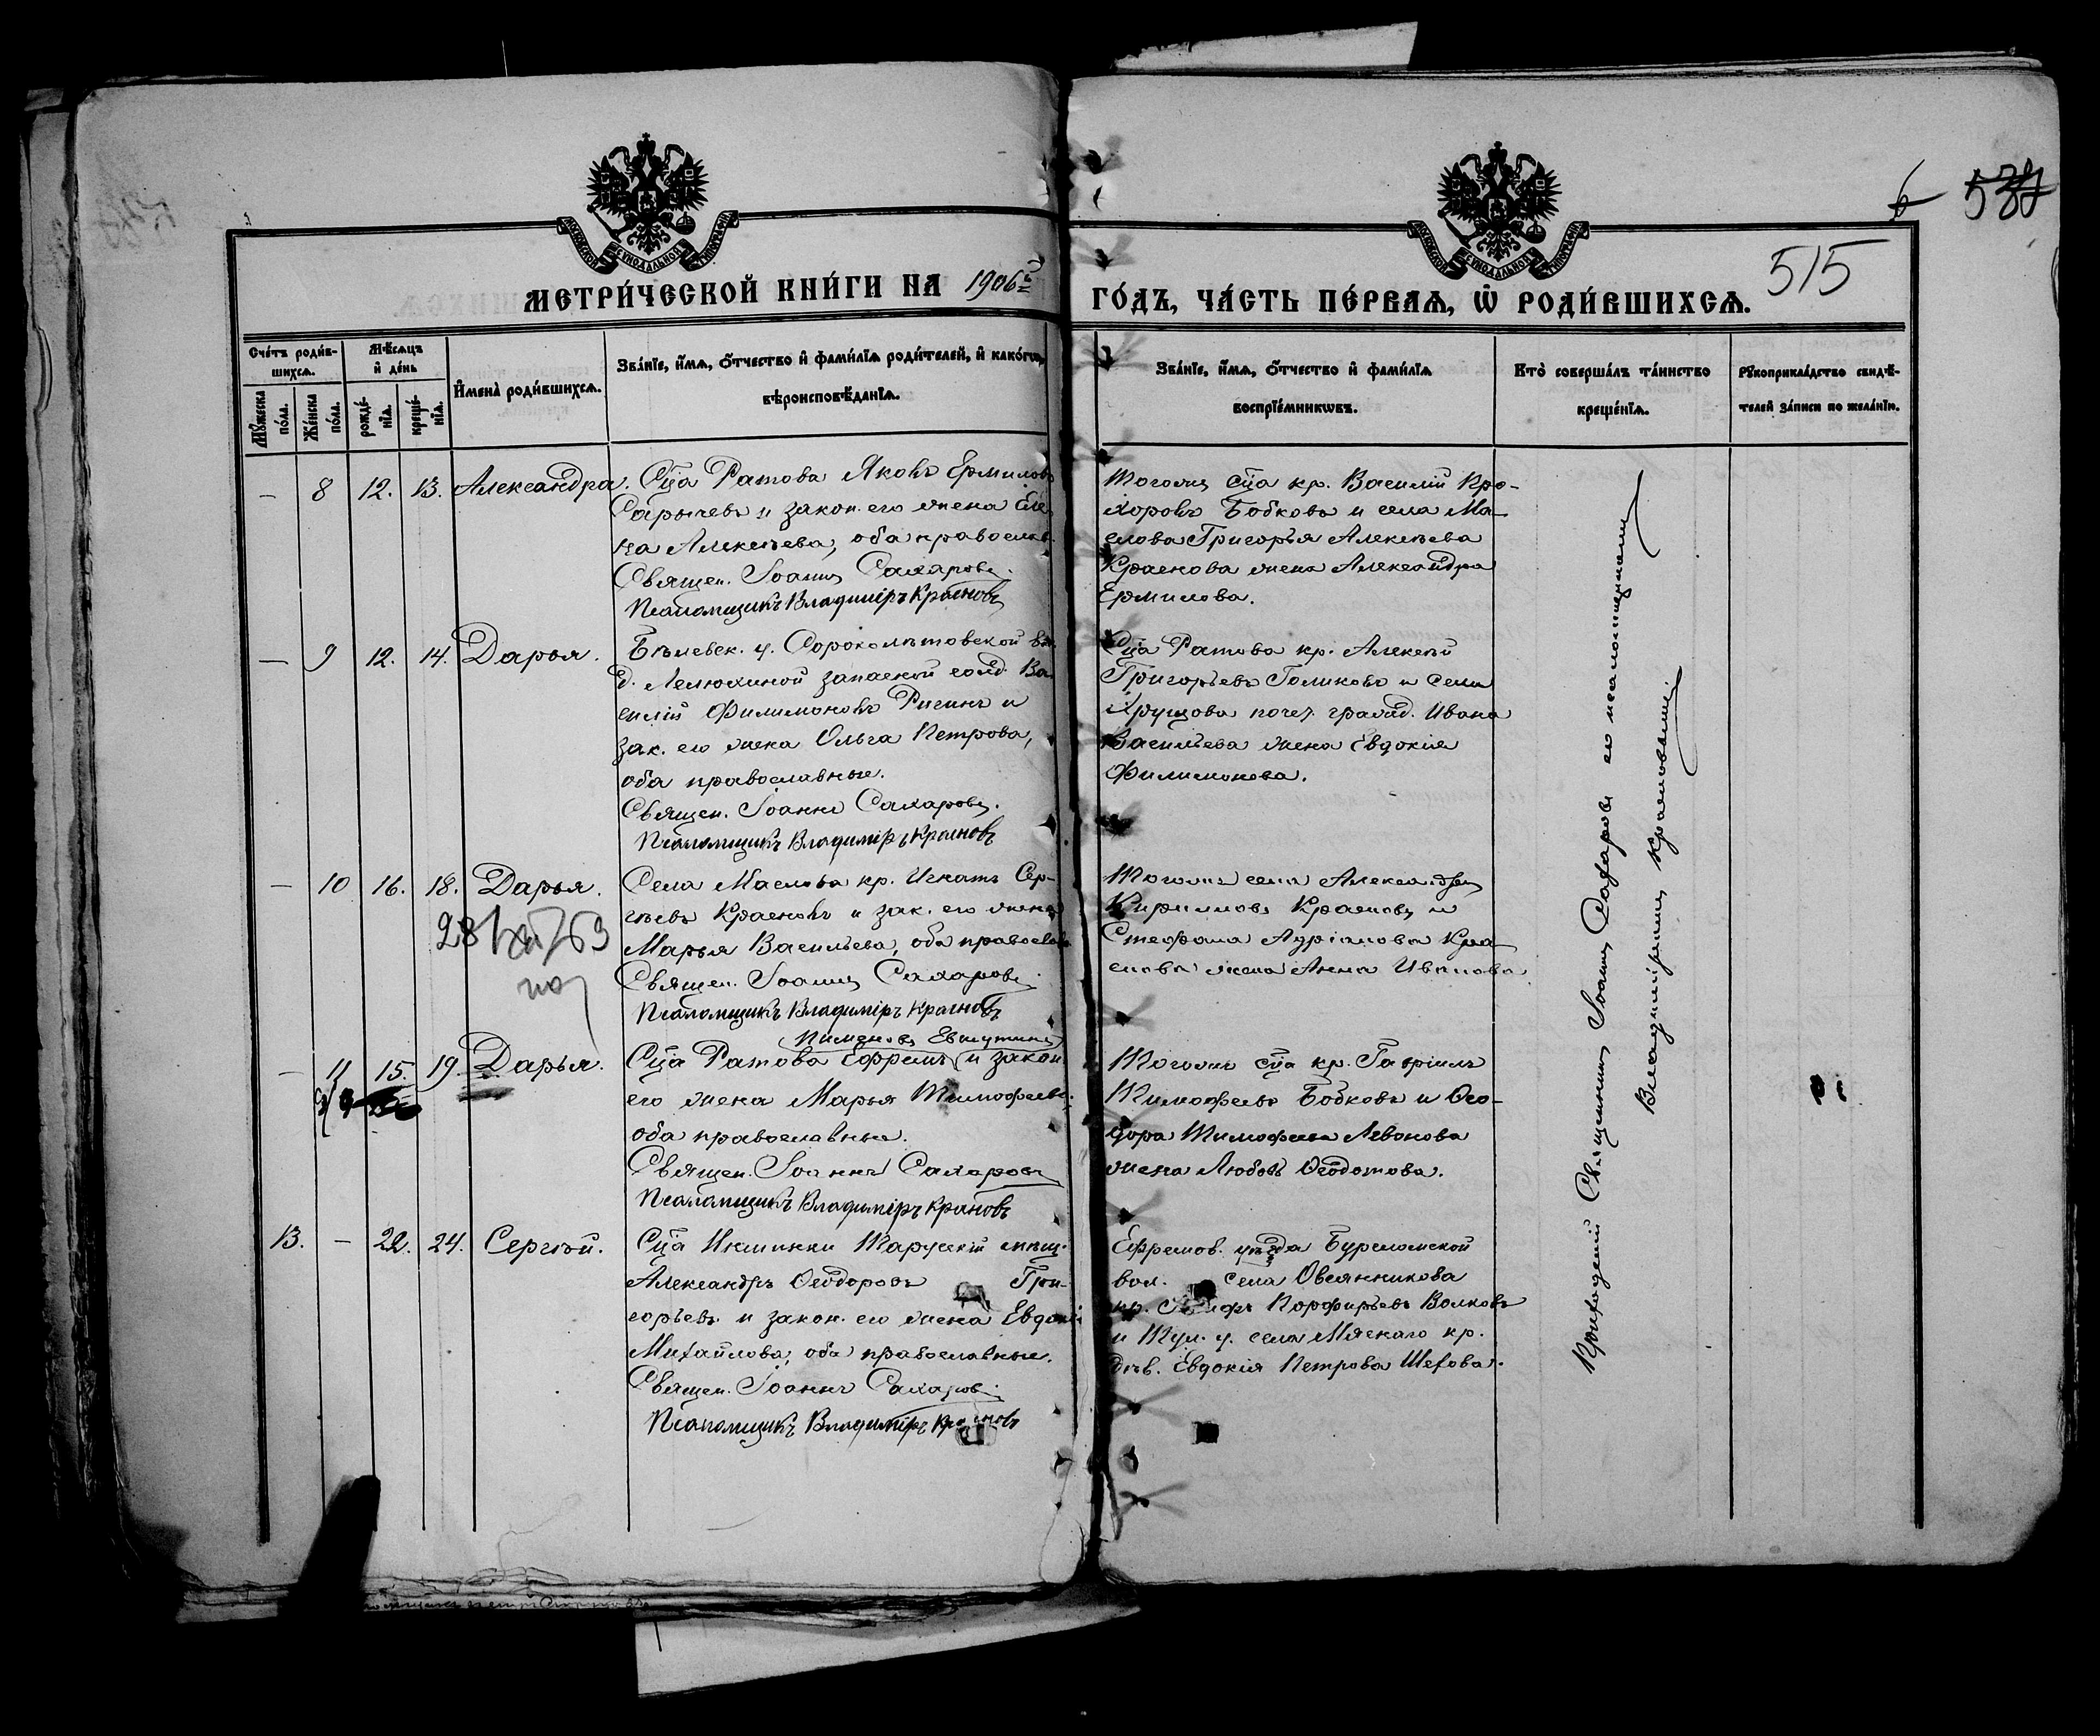 6 538
515
МЕТРИ́ЧЕСКОЙ КНИ́ГИ НА 1906й
ГО́ДЪ, ЧА́СТЬ ПЕ́РВАѦ, Ѡ҆ РОДИ́ВШИХСѦ.
Сче́тъ роди́в-
шихсѧ.
Мѣ́сѧцъ
и҆ де́нь
Мꙋ́жеска
по́ла.
Же́нска
по́ла.
рожде́-
нїѧ.
креще́-
нїѧ.
И҆мена̀ роди́вшихсѧ.
Зва́нїе, и҆́мѧ, ѻ҆́тчество и҆ фами́лїѧ роди́телей, и҆ како́гѡ
вѣроисповѣ́данїѧ.
Зва́нїе, и҆́мѧ, ѻ҆́тчество и҆ фами́лїѧ
воспрїе́мникѡвъ.
Кто̀ соверша́лъ та́инство
креще́нїѧ.
Рꙋкоприкла́дство свидѣ́-
телей за́писи по жела́нїю.
— 8 12. 13. Александра.
Сца Ратова Яковъ Ермиловъ
Сарычевъ и закон. его жена Еле-
на Алексѣева, оба православ.
Священ. Іоаннъ Сахаровъ.
Псаломщикъ Владиміръ Красновъ
Тогожъ сца кр. Василій Про-
хоровъ Бобковъ и села Ма-
слова Григорья Алексѣева
Краснова жена Александра
Ермилова.
— 9 12. 14. Дарья.
Бѣлевск. у. Сороколѣтовской вол.
д. Лелюхиной запасной солд. Ва-
силій Филимоновъ Рисинъ и
зак. его жена Ольга Петрова,
оба православные.
Священ. Іоаннъ Сахаровъ.
Псаломщикъ Владиміръ Красновъ
Сца Ратова кр. Алексѣй
Григорьевъ Голиковъ и села
Хрущова почет. гражд. Ивана
Васильева жена Евдокія
Филимонова.
— 10 16. 18. Дарья.
Села Маслова кр. Игнатъ Сер-
гѣевъ Красновъ и зак. его жена
Марья Васильева, оба православ.
Священ. Іоаннъ Сахаровъ.
Псаломщикъ Владиміръ Красновъ
Тогожъ села Александръ
Кирилловъ Красновъ и
Стефана Адріанова Кра-
снова жена Анна Иванова
— 11 15. 19. Дарья.
Пименовъ Евтутинъ
Сца Ратова Ефремъ и закон.
его жена Марья Тимофеева,
оба православные.
Священ. Іоаннъ Сахаровъ
Псаломщикъ Владиміръ Красновъ
Тогожъ сца кр. Гавріилъ
Тимофеевъ Бобковъ и Ѳео-
дора Тимофеева Левонова
жена Любовь Ѳеодотова.
13. — 22. 24. Сергѣй.
Сца Иншинки Тарускій мѣщ.
Александръ Ѳеодоровъ Гри-
горьевъ и закон. его жена Евдокія
Михайлова, оба православные.
Священ. Іоаннъ Сахаровъ.
Псаломщикъ Владиміръ Красновъ
Ефремов. уѣзда Буреломской
вол. села Овсянникова
кр. Порфирьевъ Волковъ
и Тул. у. села Мяснаго кр.
дѣв. Евдокія Петрова Шехова.
Приходскій Священникъ Іоаннъ Сахаровъ съ псаломщикомъ
Владиміромъ Красновымъ